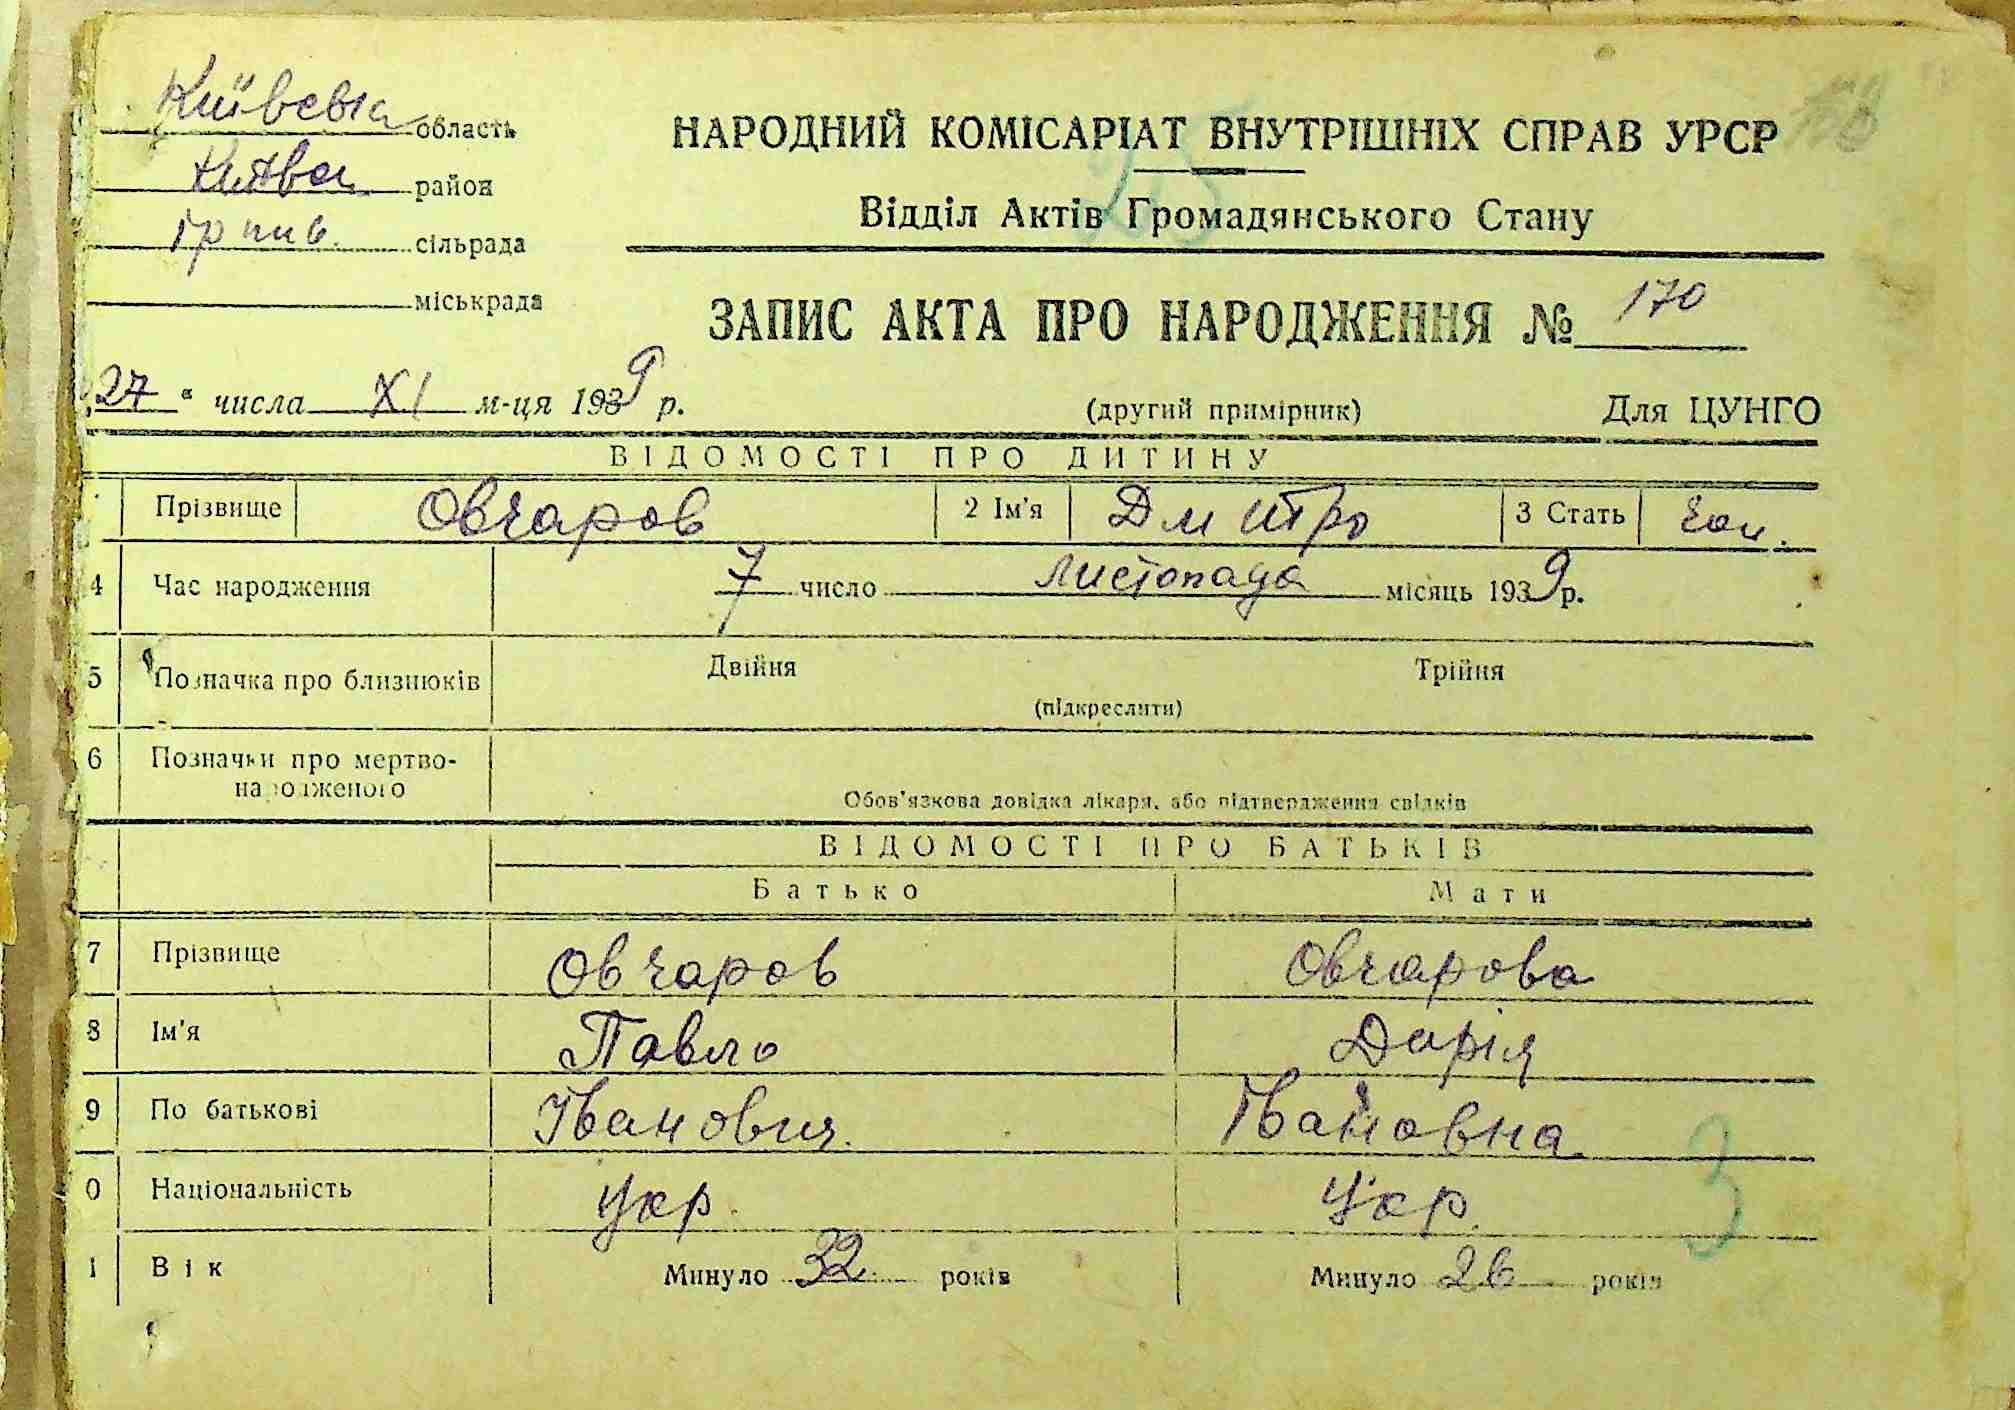 Київська область
район
сільрада
міськрада
НАРОДНИЙ КОМІСАРІАТ ВНУТРІШНІХ СПРАВ УРСР
Відділ Актів Громадянського Стану
ЗАПИС АКТА ПРО НАРОДЖЕННЯ № 170
„27“ числа XI м-ця 1939 р.
(другий примірник)
Для ЦУНГО
ВІДОМОСТІ ПРО ДИТИНУ
Прізвище Овчаров 2 Ім'я Дмитро 3 Стать чол.
4 Час народження 7 число листопада місяць 1939 р.
5 Позначка про близнюків Двійня Трійня
(підкреслити)
6 Позначки про мертво-
народженого
Обов'язкова довідка лікаря, або підтвердження свідків
ВІДОМОСТІ ПРО БАТЬКІВ
Батько Мати
7 Прізвище Овчаров Овчарова
8 Ім'я Павло Дарія
9 По батькові Іванович Івановна
0 Національність Укр. Укр.
1 Вік Минуло 32 років Минуло 26 років
3